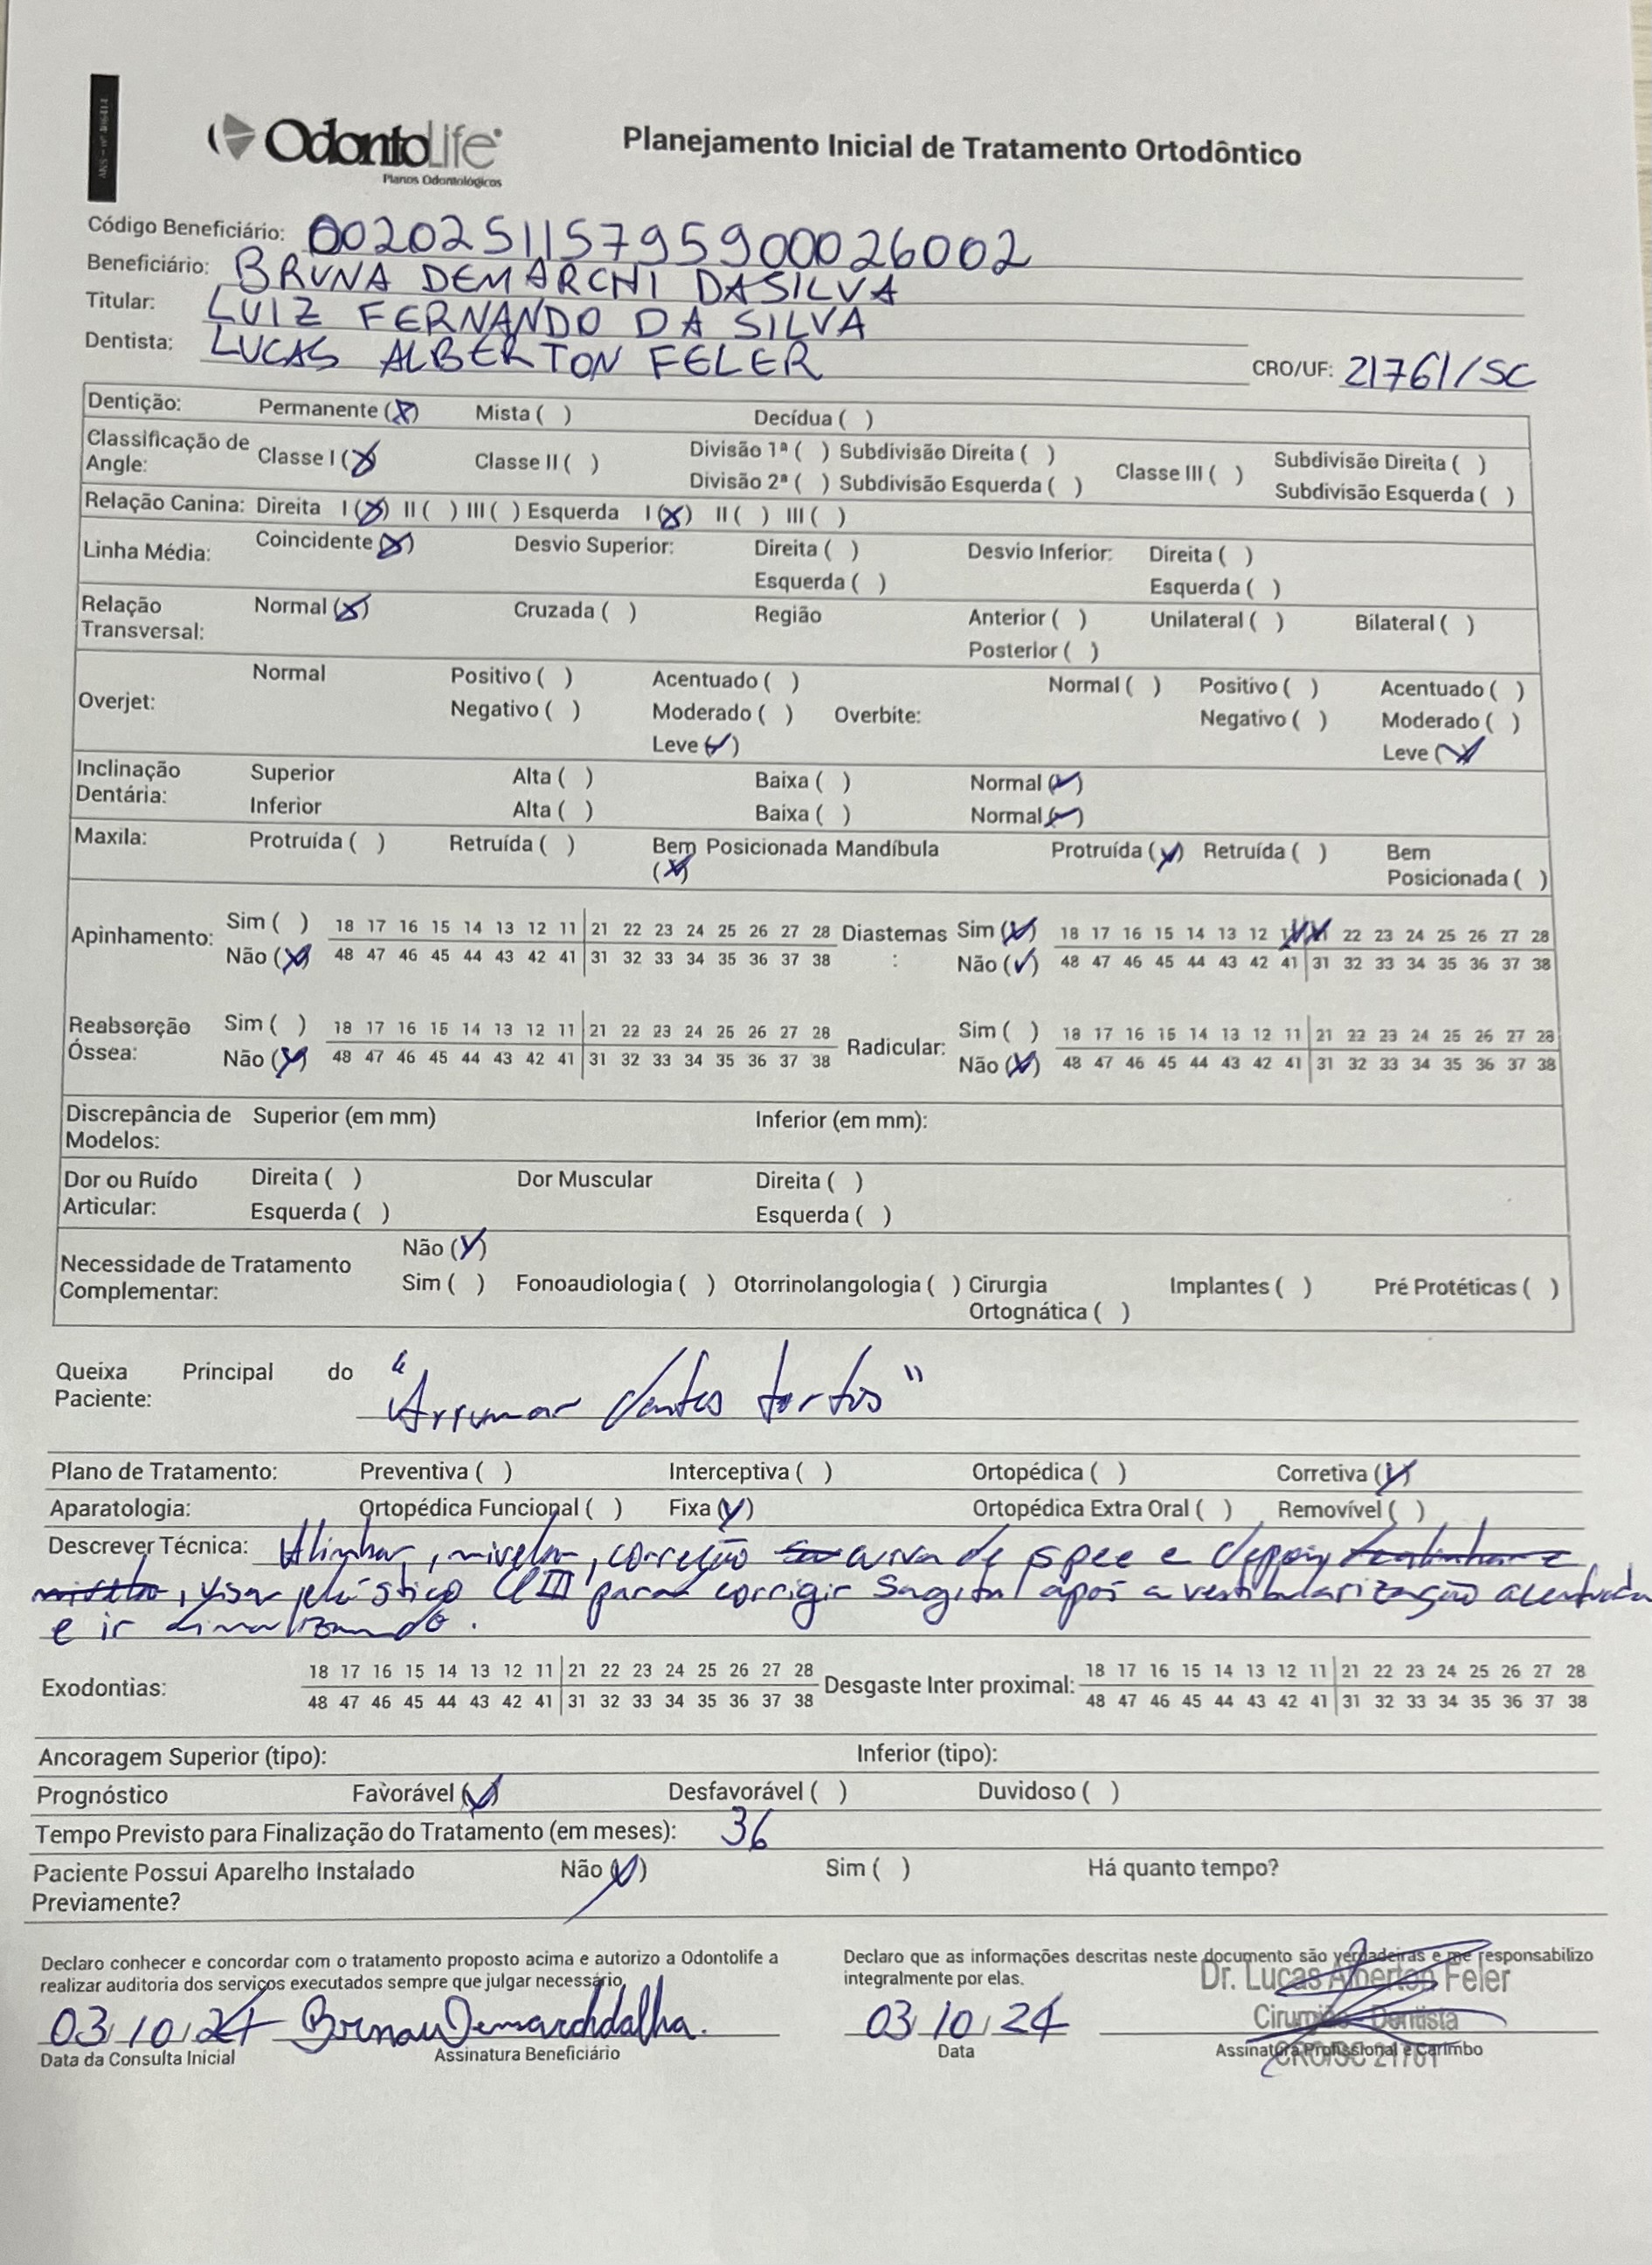 ANS - nº 406414
OdontoLife
Planos Odontológicos
Planejamento Inicial de Tratamento Ortodôntico
Código Beneficiário: 00202511579590002 6002
Beneficiário: BRUNA DEMARCHI DA SILVA
Titular: LUIZ FERNANDO DA SILVA
Dentista: LUCAS ALBERTON FELER CRO/UF: 21761/SC
Dentição: Permanente (X) Mista ( ) Decídua ( )
Classificação de Angle: Classe I (X) Classe II ( ) Divisão 1ª ( ) Subdivisão Direita ( ) Classe III ( ) Subdivisão Direita ( )
Divisão 2ª ( ) Subdivisão Esquerda ( ) Subdivisão Esquerda ( )
Relação Canina: Direita I (X) II ( ) III ( ) Esquerda I (X) II ( ) III ( )
Linha Média: Coincidente (X) Desvio Superior: Direita ( ) Desvio Inferior: Direita ( )
Esquerda ( ) Esquerda ( )
Relação Transversal: Normal (X) Cruzada ( ) Região Anterior ( ) Unilateral ( ) Bilateral ( )
Posterior ( )
Overjet: Normal Positivo ( ) Acentuado ( ) Overbite: Normal ( ) Positivo ( ) Acentuado ( )
Negativo ( ) Moderado ( ) Negativo ( ) Moderado ( )
Leve (✓) Leve (X)
Inclinação Dentária: Superior Alta ( ) Baixa ( ) Normal (✓)
Inferior Alta ( ) Baixa ( ) Normal (✓)
Maxila: Protruída ( ) Retruída ( ) Bem Posicionada (X) Mandíbula Protruída (✓) Retruída ( ) Bem Posicionada ( )
Apinhamento: Sim ( ) 18 17 16 15 14 13 12 11 21 22 23 24 25 26 27 28 Diastemas: Sim (X) 18 17 16 15 14 13 12 11 21 22 23 24 25 26 27 28
Não (X) 48 47 46 45 44 43 42 41 31 32 33 34 35 36 37 38 Não (✓) 48 47 46 45 44 43 42 41 31 32 33 34 35 36 37 38
Reabsorção Óssea: Sim ( ) 18 17 16 15 14 13 12 11 21 22 23 24 25 26 27 28 Radicular: Sim ( ) 18 17 16 15 14 13 12 11 21 22 23 24 25 26 27 28
Não (X) 48 47 46 45 44 43 42 41 31 32 33 34 35 36 37 38 Não (X) 48 47 46 45 44 43 42 41 31 32 33 34 35 36 37 38
Discrepância de Modelos: Superior (em mm) Inferior (em mm):
Dor ou Ruído Articular: Direita ( ) Dor Muscular Direita ( )
Esquerda ( ) Esquerda ( )
Necessidade de Tratamento Complementar: Não (X)
Sim ( ) Fonoaudiologia ( ) Otorrinolangologia ( ) Cirurgia Ortognática ( ) Implantes ( ) Pré Protéticas ( )
Queixa Principal do Paciente: "Arrumar dentes tortos"
Plano de Tratamento: Preventiva ( ) Interceptiva ( ) Ortopédica ( ) Corretiva (X)
Aparatologia: Ortopédica Funcional ( ) Fixa (X) Ortopédica Extra Oral ( ) Removível ( )
Descrever Técnica: Alinhar, nivelar, correção curva de spee e depois
, usar elástico Cl III para corrigir Sagital após a vestibularização acentuada
e ir finalizando.
Exodontias: 18 17 16 15 14 13 12 11 21 22 23 24 25 26 27 28 Desgaste Inter proximal: 18 17 16 15 14 13 12 11 21 22 23 24 25 26 27 28
48 47 46 45 44 43 42 41 31 32 33 34 35 36 37 38 48 47 46 45 44 43 42 41 31 32 33 34 35 36 37 38
Ancoragem Superior (tipo): Inferior (tipo):
Prognóstico Favorável (X) Desfavorável ( ) Duvidoso ( )
Tempo Previsto para Finalização do Tratamento (em meses): 36
Paciente Possui Aparelho Instalado Previamente? Não (X) Sim ( ) Há quanto tempo?
Declaro conhecer e concordar com o tratamento proposto acima e autorizo a Odontolife a
realizar auditoria dos serviços executados sempre que julgar necessário.
03/10/24
Data da Consulta Inicial Assinatura Beneficiário
Declaro que as informações descritas neste documento são verdadeiras e me responsabilizo
integralmente por elas.
Dr. Lucas Alberton Feler
Cirurgião - Dentista
CRO/SC 21761
03/10/24
Data Assinatura Profissional e Carimbo